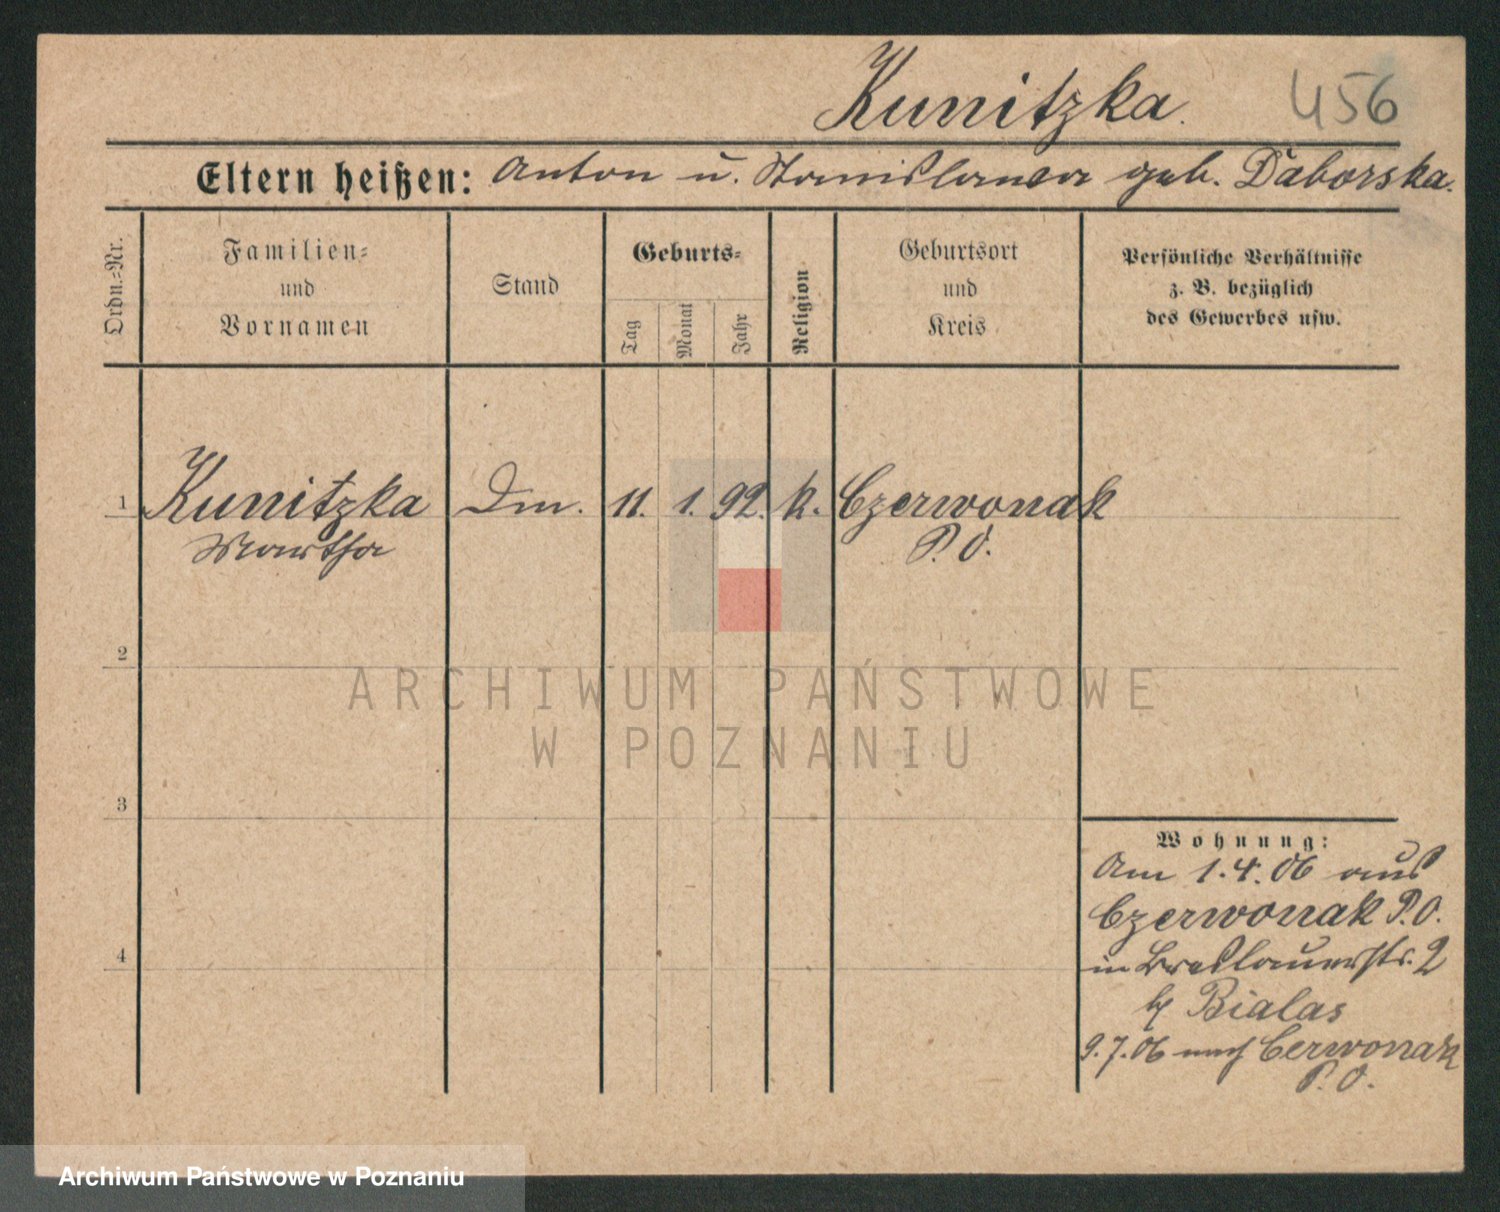 Kunitzka.
456
Eltern heißen: Anton u. Stanislawa geb. Daborska.
Ordn.-Nr.
Familien-
und
Vornamen
Stand
Geburts-
Tag
Monat
Jahr
Religion
Geburtsort
und
Kreis
Persönliche Verhältnisse
z. B. bezüglich
des Gewerbes usw.
1 Kunitzka Dm. 11. 1. 92. k. Czerwonak
Martha P. O.
2
ARCHIWUM PAŃSTWOWE
W POZNANIU
3
Wohnung:
Am 1.4.06 aus
Czerwonak P.O.
in Breslauerstr. 2
Bialas
9.7.06 nach Cerwonak
P. O.
4
Archiwum Państwowe w Poznaniu